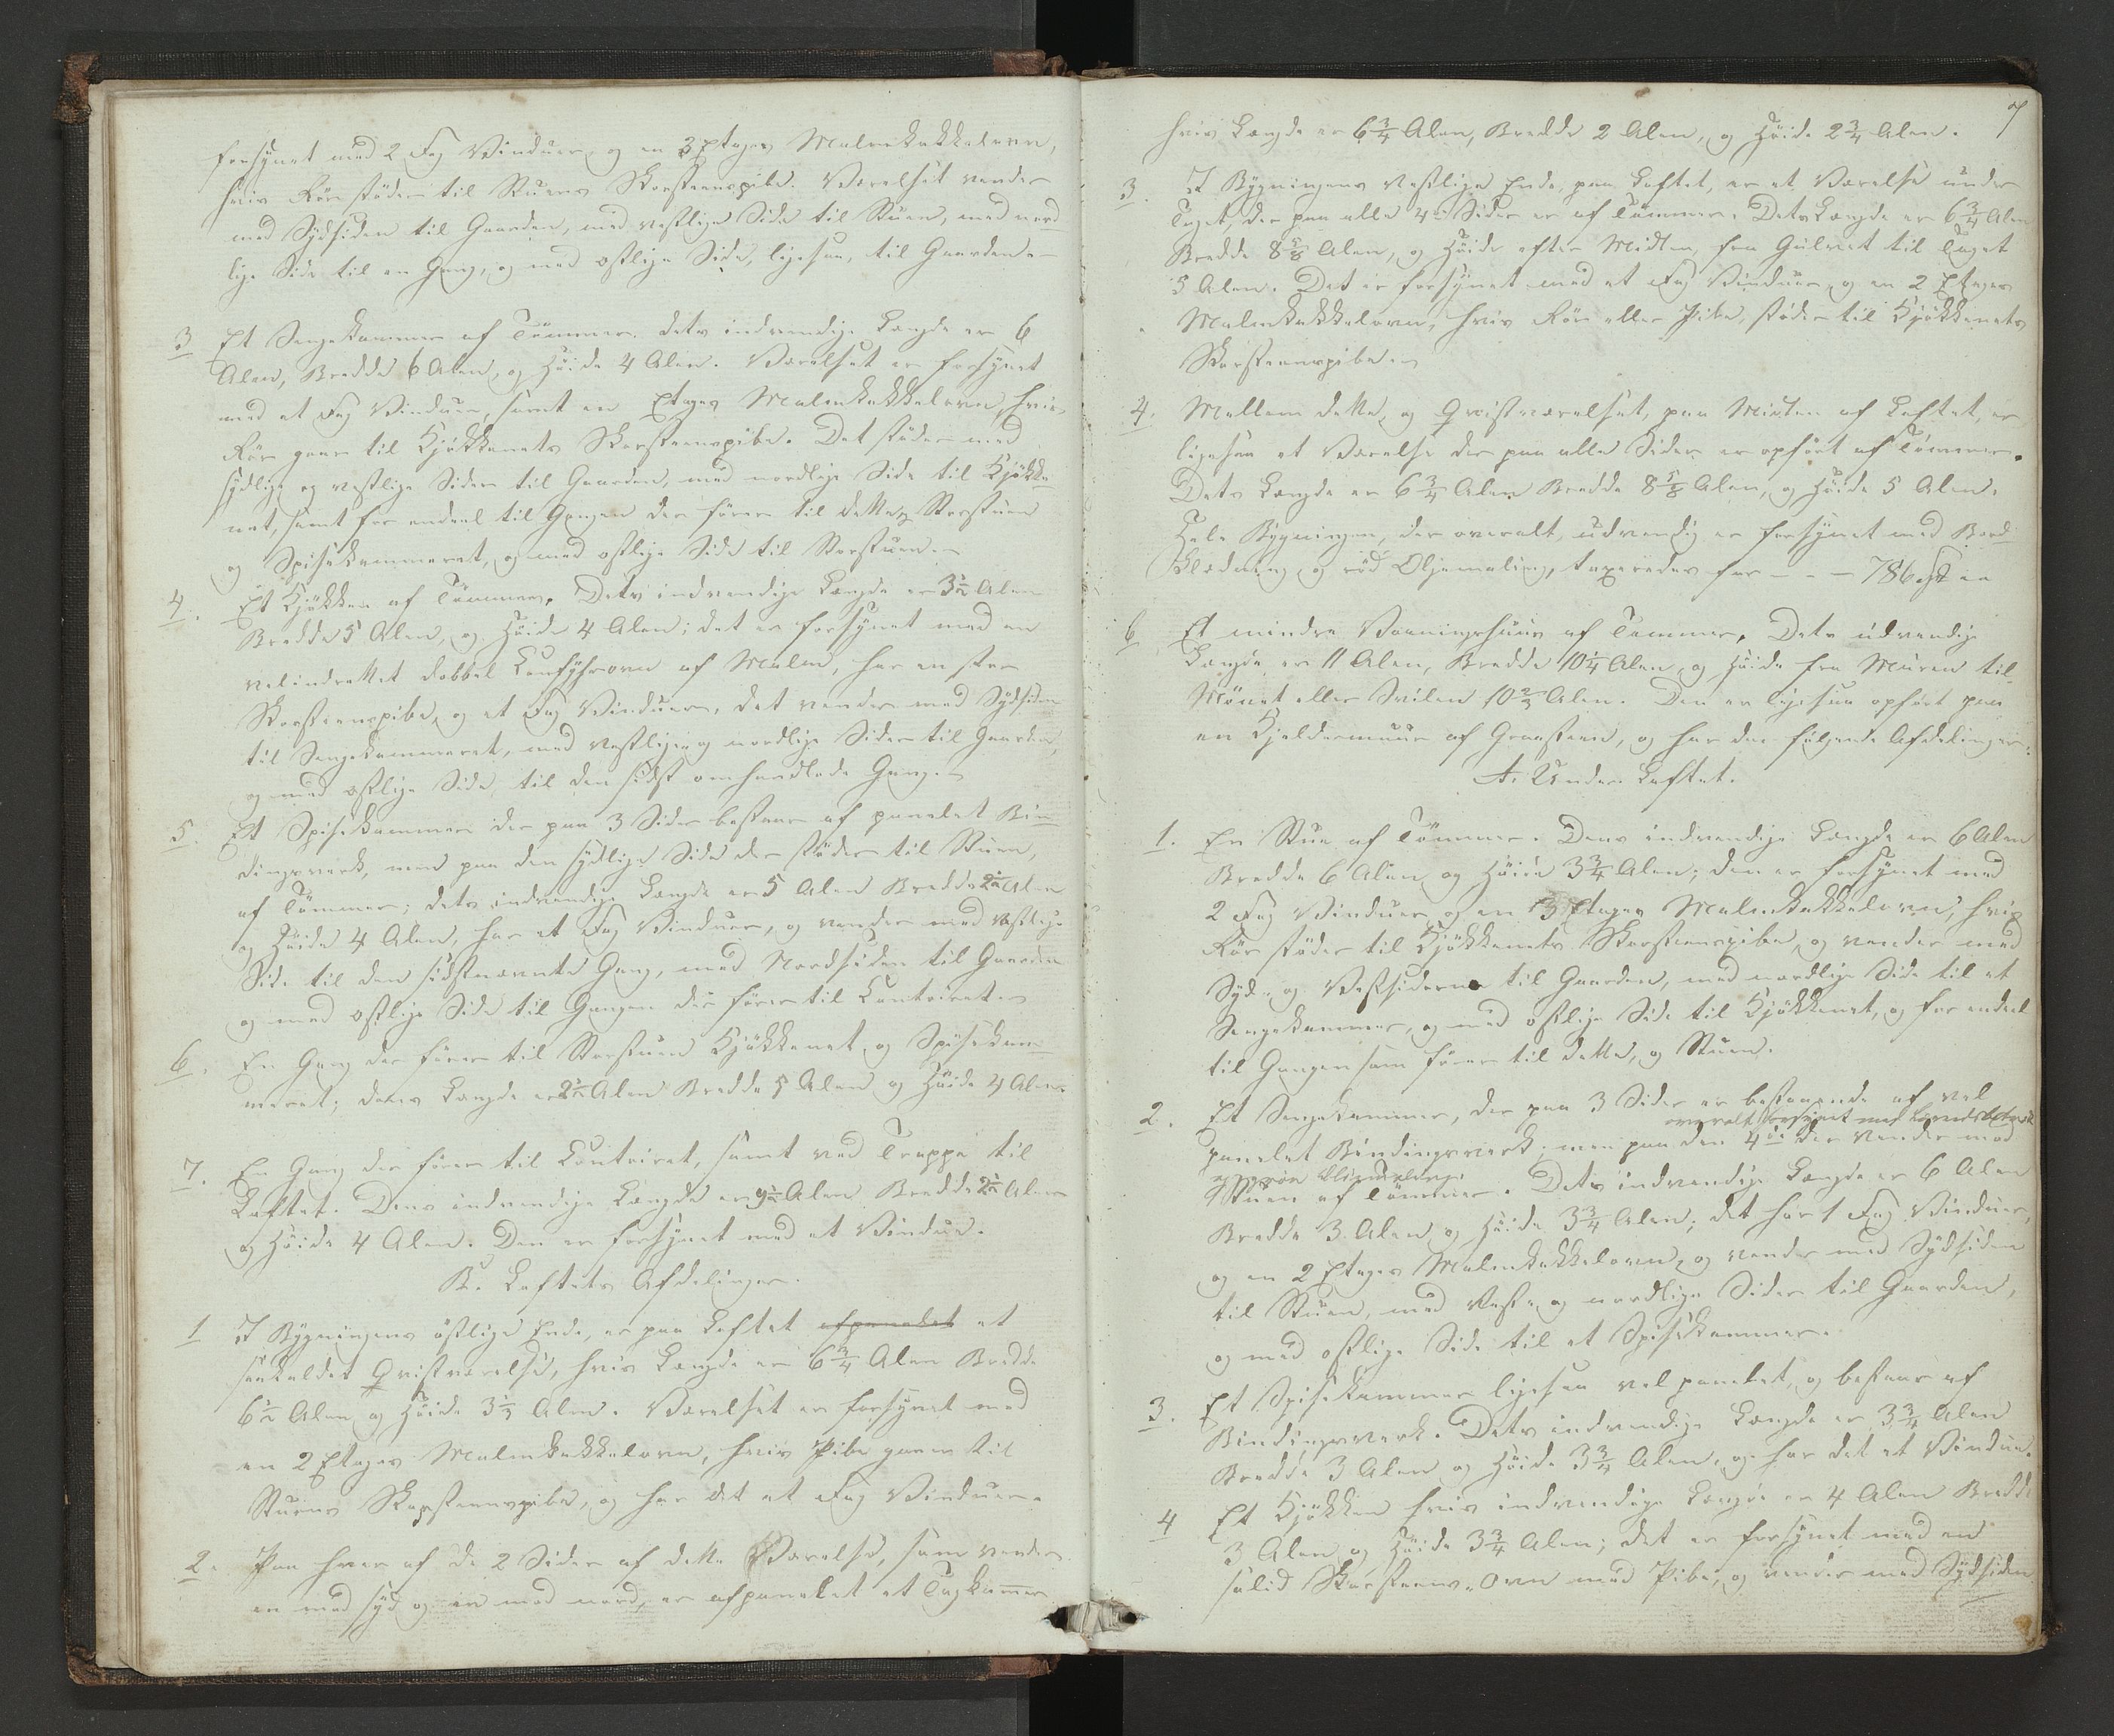 forsynet med 2 Fag Vinduer, og en 3 Etages Malmkakkelovn,
hvis Rör stöder til Stuens Skorsteenspibe. Værelset vender
med Sydsiden til Gaarden, med vestlige Side til Stuen, med nord
lige Side til en Gang, og med ostlige Side, ligesaa, til Gaarden.
3 Et Sengekammer af Tömmer. dets indvendige Længde er 6
Alen, Bredde 6 Alen, og Höide 4 Alen. Værelset er forsynet
med et Fag Vinduer, samt en Etages Malmkakkelovn, hvis
Rör gaar til Kjökkenets Skorsteenspibe. Det stöder med
sydlige og vestlige Sider til Gaarden, med nordlige Side til Kjökke
net, samt for endeel til Gangen der förer til dette, Storstuen
og Spisekammeret, og med ostlige Side til Storstuen.
4. Et Kjökken af Tömmer. Dets indvendige Længde er 3½ Alen
Bredde 5 Alen, og Höide 4 Alen; det er forsynet med en
velindrettet dobbel Komfyhrovn af Malm, har en stor
Skorsteenspibe, og et Fag Vinduer, det vender med Sydsiden
til Sengekammeret, med vestlige og nordlige Sider til Gaarden,
og med ostlige Side, til den sidst omhandlede Gang.
5. Et Spisekammer der paa 3 Sider bestaar af panelet Bin
dingsverk, men paa den sydlige Side der stöder til Stuen,
af Tömmer; dets indvendige Længde er 5 Alen Bredde 2½ Alen
og Höide 4 Alen, har et Fag Vinduer, og vender med Vestlige
Side til den sidstnævnte Gang, med Nordsiden til Gaarden
og med ostlige Side til Gangen der förer til Contoiret.
6. En Gang der förer til Storstuen Kjökkenet og Spisekam
meret; dens Længde er 2½ Alen Bredde 5 Alen og Höide 4 Alen.
7. En Gang der förer til Contoiret, samt ved Trappe til
Loftet. Dens indvendige Længde er 9½ Alen Bredde 2½ Alen
og Höide 4 Alen. Den er forsynet med et Vindue.
B. Loftets Afdelinger.
1 I Bygningens östlige Ende, er paa Loftet afpanelet et
saakaldet Qvistværelse, hvis Længde er 6¾ Alen Bredde
6½ Alen og Höide 3½ Alen. Værelset er forsynet med
en 2 Etages Malmkakkelovn, hvis Pibe gaaer til
Stuens Skorsteenspibe, og har det et Fag Vinduer.
2. Paa hver af de 2 Sider af dette Værelse, som vender
en mod syd og en mod nord, er afpanelet et Tagkammer
7
hvis Længde er 6¾ Alen, Bredde 2 Alen, og Höide 2¾ Alen.
3. I Bygningens Vestlige Ende, paa Loftet, er et Værelse under
Taget, der paa alle 4 Sider er af Tömmer. Dets Længde er 6¾ Alen
Bredde 8⅝ Alen, og Höide efter Midten, fra Gulvet til Taget
5 Alen. Det er forsynet med et Fag Vinduer, og en 2 Etages
Malmkakkelovn, hvis Rör eller Pibe, stöder til Kjökkenets
Skorsteenspibe.
4. Mellem dette, og Qvistværelset, paa Midten af Loftet, er
ligesaa et Værelse der paa alle Sider er opfört af Tömmer.
Dets Længde er 6¾ Alen Bredde 8⅝ Alen, og Höide 5 Alen.
Hele Bygningen, der overalt, udvendig er forsynet med Bord
klædning og röd Oljemaling, taxeredes for - - - 786
6 Et mindre Vaaningshuus af Tömmer. Dets udvendige
Længde er 11 Alen, Bredde 10¼ Alen, og Höide fra Muren til
Mönet eller Svilen 10⅔ Alen. Den er ligesaa opfört paa
en Kjeldermuur af Graasteen, og har den fölgende Afdelinger:
A. Under Loftet.
1. En Stue af Tömmer. Dens indvendige Længde er 6 Alen
Bredde 6 Alen og Höide 3¾ Alen; den er forsynet med
2 Fag Vinduer, og en 3 Etages Malmkakkelovn, hvis
Rör stöder til Kjökkenets Skorsteenspibe, og vender med
Syd- og Vestsiderne til Gaarden, med nordlige Side til et
Sengekammer, og med ostlige Side til Kjökkenet, og for endeel
til Gangen som förer til dette, og Stuen.
2. Et Sengekammer, der paa 3 Sider er bestaaende af vel
overalt forsynet med
panelet Bindingsverk, men paa den 4de der vender mod
Stuen af Tömmer. Dets indvendige Længde er 6 Alen
Bredde 3 Alen, og Höide 3¾ Alen; det har 1 Fag Vinduer,
og en 2 Etages Malmkakkelovn, og vender med Sydsiden
til Stuen, med Vest- og nordlige Sider til Gaarden,
og med ostlige Side til et Spisekammer.
3. Et Spisekammer ligesaa vel panelet, og bestaar af
Bindingsverk. Dets indvendige Længde er 3¾ Alen
Bredde 3 Alen og Höide 3¾ Alen, og har det et Vindue.
4 Et Kjökken hvis indvendige Længde er 4 Alen Bredde
3 Alen og Höide 3¾ Alen; det er forsynet med en
solid Skorsteens-Ovn med Pibe, og vender med Sydsiden